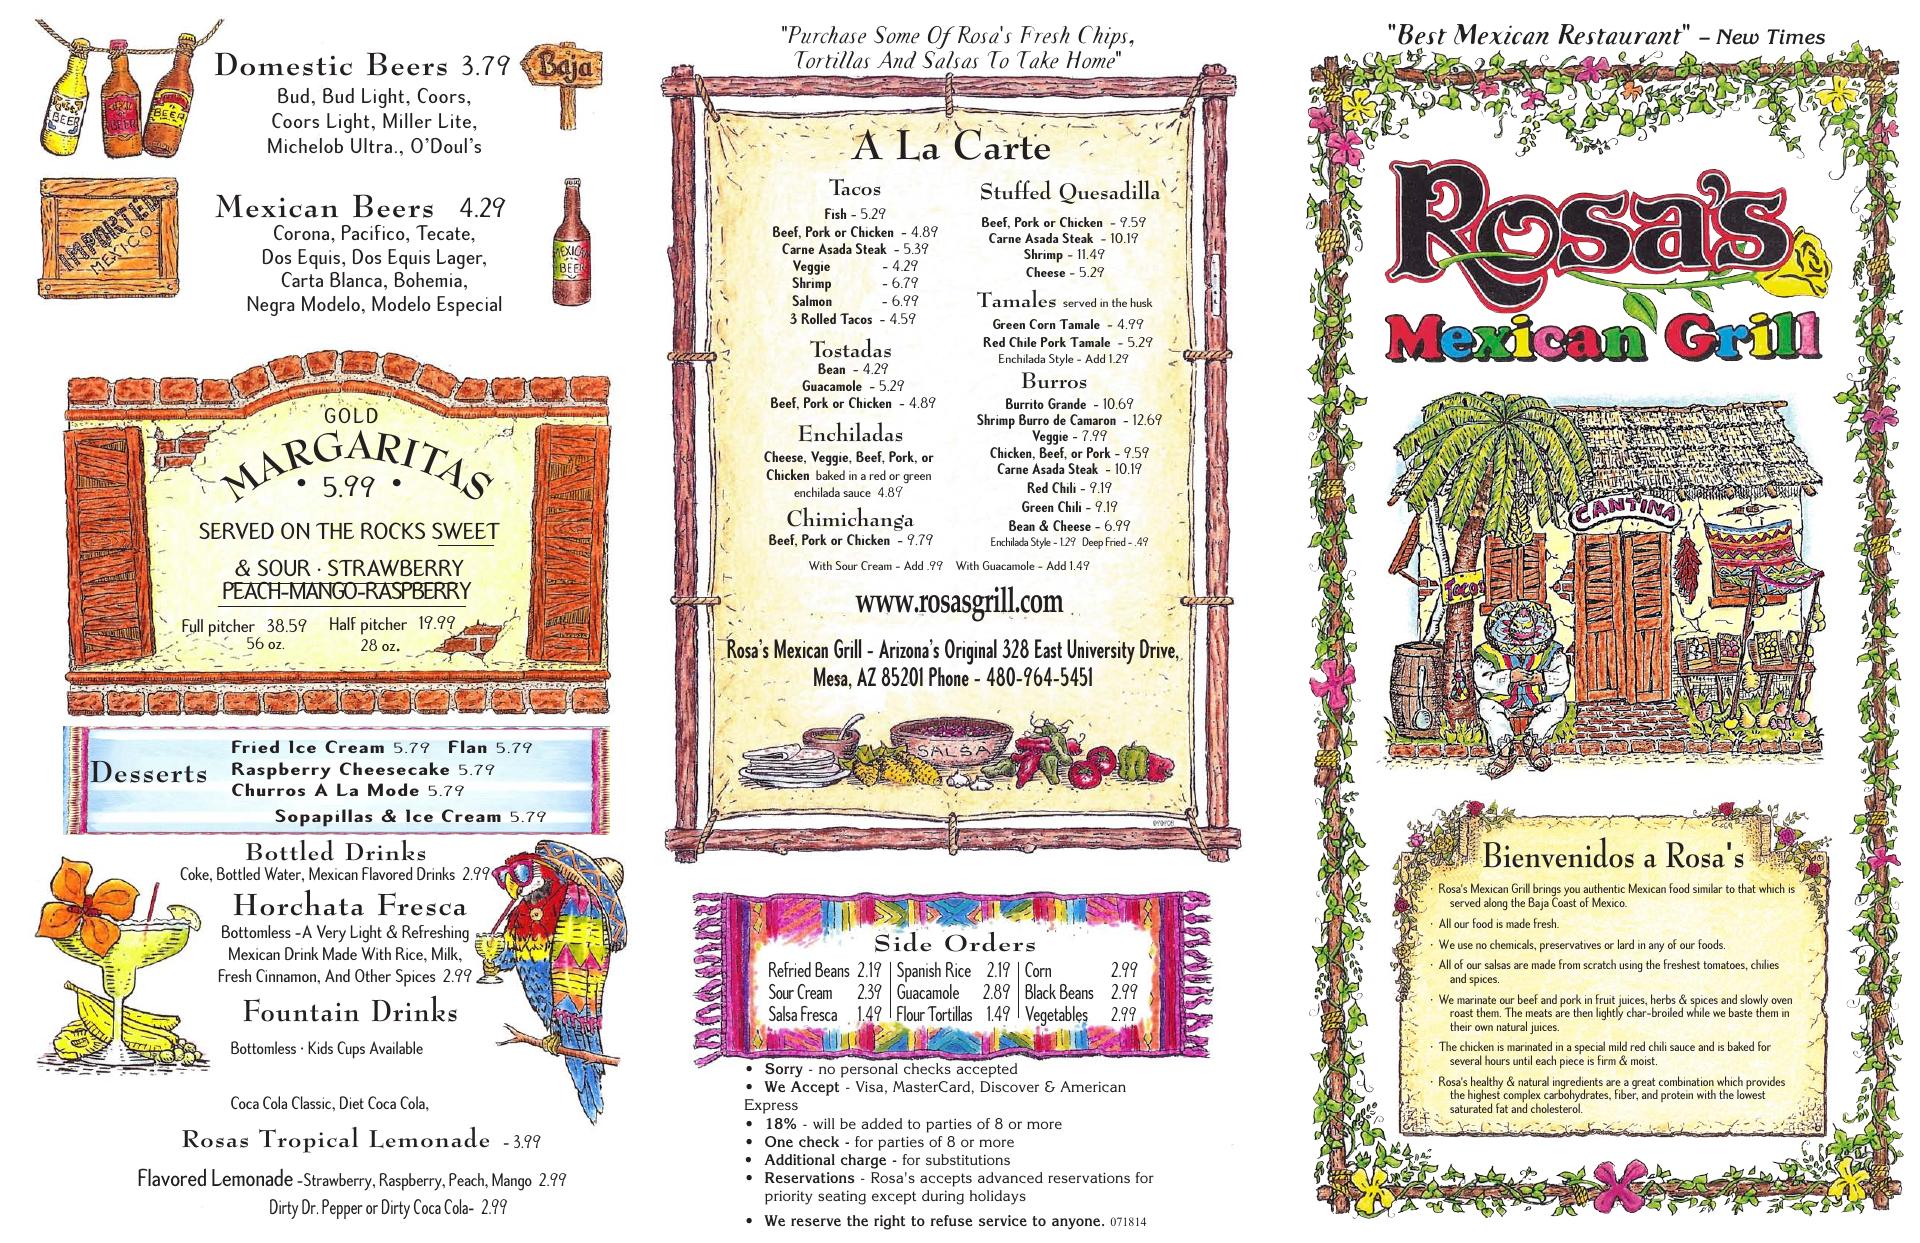 Domestic Beers 3.79
Bud, Bud Light, Coors,
Coors Light, Miller Lite,
Michelob Ultra., O'Doul's
Baja
BEER
MEXICAN BEER
BEER
Mexican Beers 4.29
Corona, Pacifico, Tecate,
Dos Equis, Dos Equis Lager,
Carta Blanca, Bohemia,
Negra Modelo, Modelo Especial
IMPORTED
MEXICO
MEXICAN
BEER
GOLD
MARGARITAS
• 5.99 •
SERVED ON THE ROCKS SWEET
& SOUR · STRAWBERRY
PEACH-MANGO-RASPBERRY
Full pitcher 38.59 Half pitcher 19.99
56 oz. 28 oz.
Desserts
Fried Ice Cream 5.79 Flan 5.79
Raspberry Cheesecake 5.79
Churros A La Mode 5.79
Sopapillas & Ice Cream 5.79
Bottled Drinks
Coke, Bottled Water, Mexican Flavored Drinks 2.99
Horchata Fresca
Bottomless -A Very Light & Refreshing
Mexican Drink Made With Rice, Milk,
Fresh Cinnamon, And Other Spices 2.99
Fountain Drinks
Bottomless · Kids Cups Available
Coca Cola Classic, Diet Coca Cola,
Rosas Tropical Lemonade - 3.99
Flavored Lemonade -Strawberry, Raspberry, Peach, Mango 2.99
Dirty Dr. Pepper or Dirty Coca Cola- 2.99
"Purchase Some Of Rosa's Fresh Chips,
Tortillas And Salsas To Take Home"
A La Carte
Tacos
Fish - 5.29
Beef, Pork or Chicken - 4.89
Carne Asada Steak - 5.39
Veggie - 4.29
Shrimp - 6.79
Salmon - 6.99
3 Rolled Tacos - 4.59
Tostadas
Bean - 4.29
Guacamole - 5.29
Beef, Pork or Chicken - 4.89
Enchiladas
Cheese, Veggie, Beef, Pork, or
Chicken baked in a red or green
enchilada sauce 4.89
Chimichanga
Beef, Pork or Chicken - 9.79
Stuffed Quesadilla
Beef, Pork or Chicken - 9.59
Carne Asada Steak - 10.19
Shrimp - 11.49
Cheese - 5.29
Tamales served in the husk
Green Corn Tamale - 4.99
Red Chile Pork Tamale - 5.29
Enchilada Style - Add 1.29
Burros
Burrito Grande - 10.69
Shrimp Burro de Camaron - 12.69
Veggie - 7.99
Chicken, Beef, or Pork - 9.59
Carne Asada Steak - 10.19
Red Chili - 9.19
Green Chili - 9.19
Bean & Cheese - 6.99
Enchilada Style - 1.29 Deep Fried - .49
With Sour Cream - Add .99 With Guacamole - Add 1.49
www.rosasgrill.com
Rosa's Mexican Grill - Arizona's Original 328 East University Drive,
Mesa, AZ 85201 Phone - 480-964-5451
SALSA
Side Orders
Refried Beans 2.19 Spanish Rice 2.19 Corn 2.99
Sour Cream 2.39 Guacamole 2.89 Black Beans 2.99
Salsa Fresca 1.49 Flour Tortillas 1.49 Vegetables 2.99
• Sorry - no personal checks accepted
• We Accept - Visa, MasterCard, Discover & American
Express
• 18% - will be added to parties of 8 or more
• One check - for parties of 8 or more
• Additional charge - for substitutions
• Reservations - Rosa's accepts advanced reservations for
priority seating except during holidays
• We reserve the right to refuse service to anyone. 071814
"Best Mexican Restaurant" – New Times
Rosa's
Mexican Grill
CANTINA
Tacos
Bienvenidos a Rosa's
· Rosa's Mexican Grill brings you authentic Mexican food similar to that which is
served along the Baja Coast of Mexico.
· All our food is made fresh.
· We use no chemicals, preservatives or lard in any of our foods.
· All of our salsas are made from scratch using the freshest tomatoes, chilies
and spices.
· We marinate our beef and pork in fruit juices, herbs & spices and slowly oven
roast them. The meats are then lightly char-broiled while we baste them in
their own natural juices.
· The chicken is marinated in a special mild red chili sauce and is baked for
several hours until each piece is firm & moist.
· Rosa's healthy & natural ingredients are a great combination which provides
the highest complex carbohydrates, fiber, and protein with the lowest
saturated fat and cholesterol.